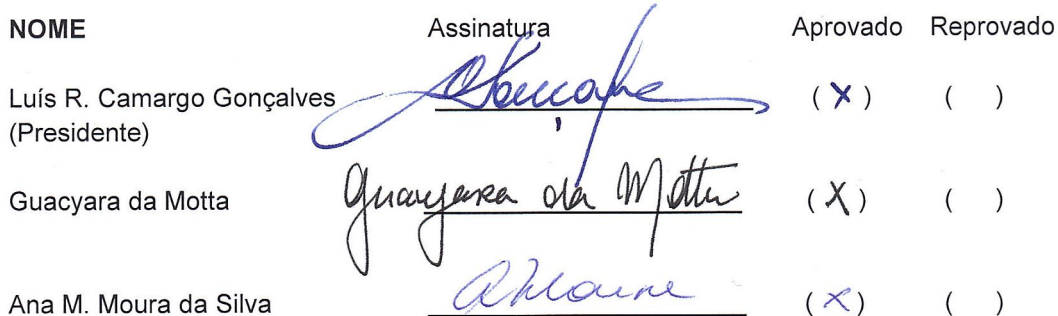 NOME Assinatura Aprovado Reprovado
Luís R. Camargo Gonçalves ( X ) ( )
(Presidente)
Guacyara da Motta Guacyara da Motta ( X ) ( )
Ana M. Moura da Silva ( X ) ( )